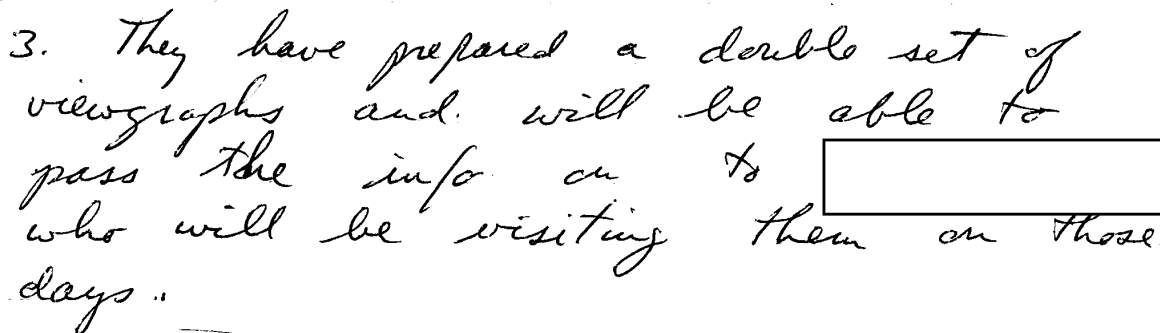 3. They have prepared a double set of
viewgraphs and will be able to
pass the info on to
who will be visiting them on those
days.